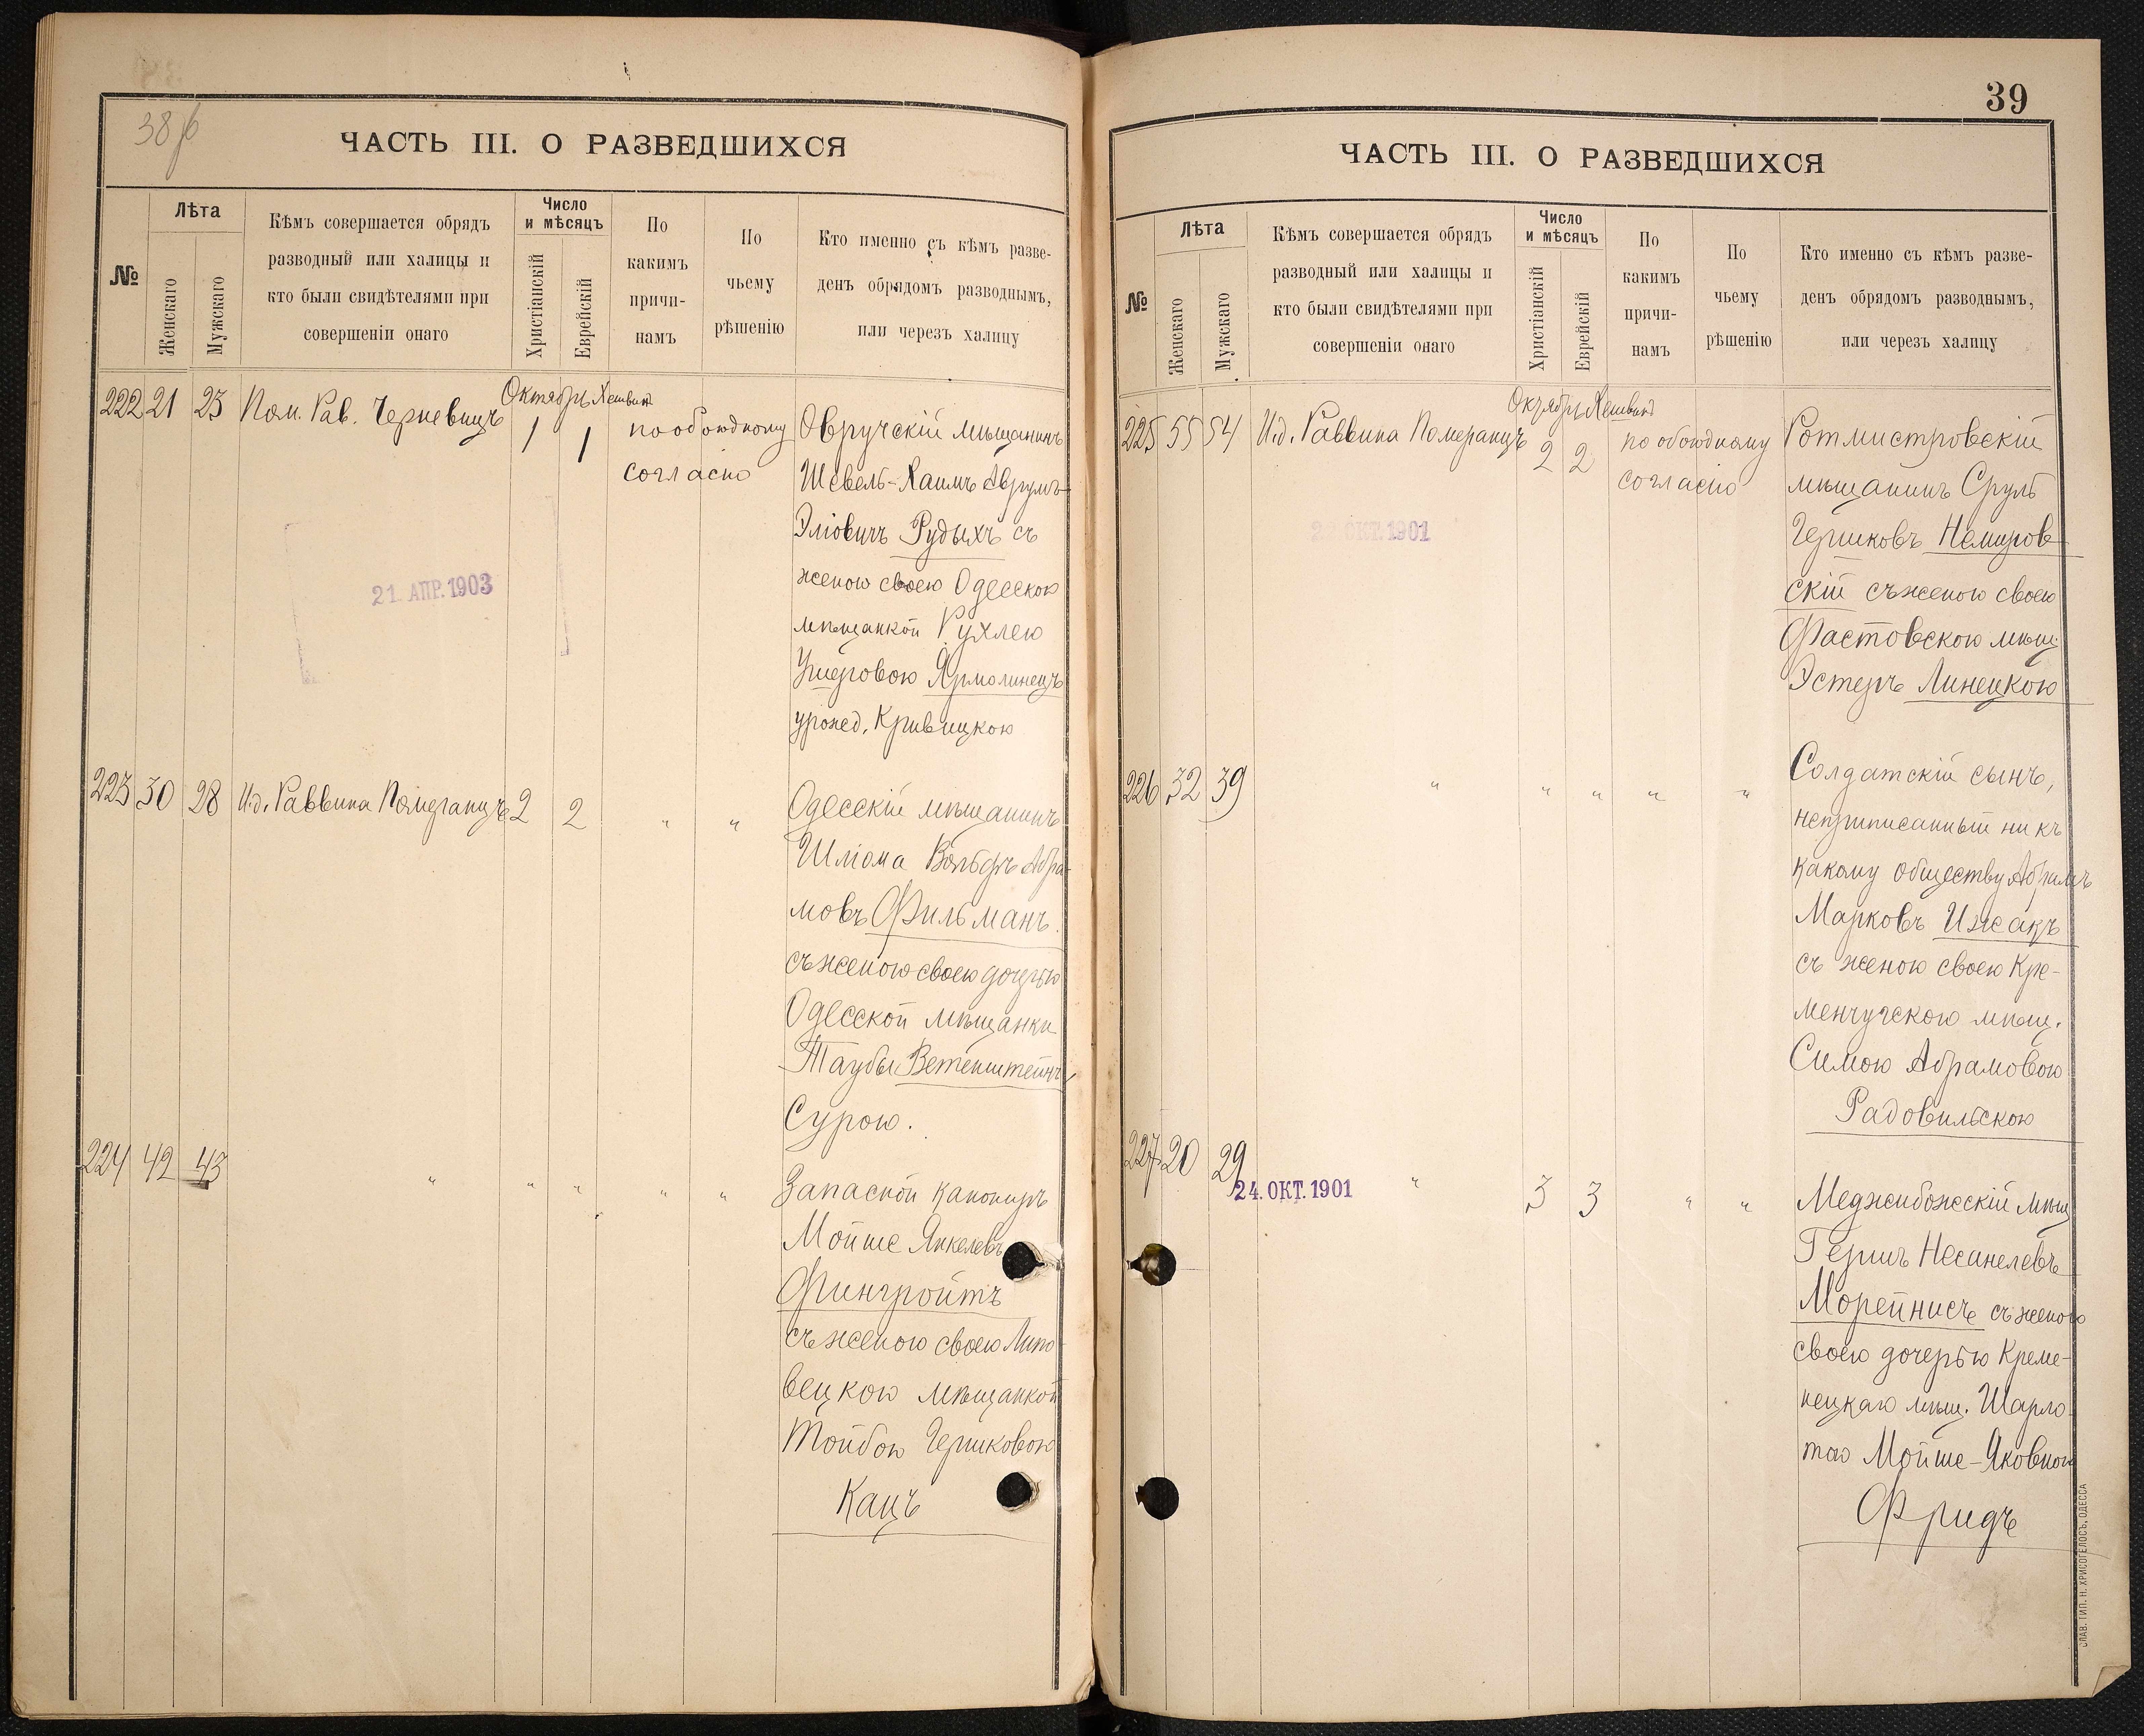 38 об
ЧАСТЬ III. О РАЗВЕДШИХСЯ
№
Лѣта
Женскаго
Мужскаго
Кѣмъ совершается обрядъ
разводный или халицы и
кто были свидѣтелями при
совершеніи онаго
Число
и мѣсяцъ
Христіанскій
Еврейскій
По
какимъ
причи-
намъ
По
чьему
рѣшенію
Кто именно съ кѣмъ разве-
денъ обрядомъ разводнымъ,
или черезъ халицу
Октябрь Хешвин
222 21 23 Пом. Рав. Черневицъ 1 1 по обоюдному
согласію
Овручскій мѣщанинъ
Шевель-Хаимъ Аврумъ-
Эліовичъ Рудыхъ съ
женою своею Одесскою
мѣщанкой Рухлею
Ушеровою Ярмолинецъ
урожд. Кривицкою
21. АПР. 1903
223 30 28 И.д. Раввина Померанцъ 2 2 " "
Одесскій мѣщанинъ
Шліома Вольфъ Абра-
мовъ Фильманъ
съ женою своею дочерью
Одесской мѣщанки
Таубы Ветенштейнъ
Сурою.
224 42 43 " " " " "
Запасной канониръ
Мойше Янкелевъ
Финчройтъ
съ женою своею Липо-
вецкою мѣщанкой
Тойбою Гершковою
Кацъ
39
ЧАСТЬ III. О РАЗВЕДШИХСЯ
№
Лѣта
Женскаго
Мужскаго
Кѣмъ совершается обрядъ
разводный или халицы и
кто были свидѣтелями при
совершеніи онаго
Число
и мѣсяцъ
Христіанскій
Еврейскій
По
какимъ
причи-
намъ
По
чьему
рѣшенію
Кто именно съ кѣмъ разве-
денъ обрядомъ разводнымъ,
или черезъ халицу
Октябрь Хешвинъ
225 55 54 И.д. Раввина Померанцъ 2 2 по обоюдному
согласію
Ротмистровскій
мѣщанинъ Сруль
Гершковъ Немиров-
скій съ женою своею
Фастовскою мѣщ.
Эстеръ Линецкою
ОКТ. 1901
226 32 39 " " " " "
Солдатскій сынъ,
неприписанный ни къ
какому обществу Абрамъ
Марковъ Ижакъ
съ женою своею Кре-
менчугскою мѣщ.
Симою Абрамовою
Радовильскою
227 20 29 " 3 3 " "
24. ОКТ. 1901
Меджибожскій мѣщ
Гершъ Несанелевъ
Морейнисъ съ женою
своею дочерью Креме-
нецкаго мѣщ. Шарло-
тою Мойше-Яковною
Фридъ
СЛАВ. ТИП. Н. ХРИСОГЕЛОСЪ, ОДЕССА